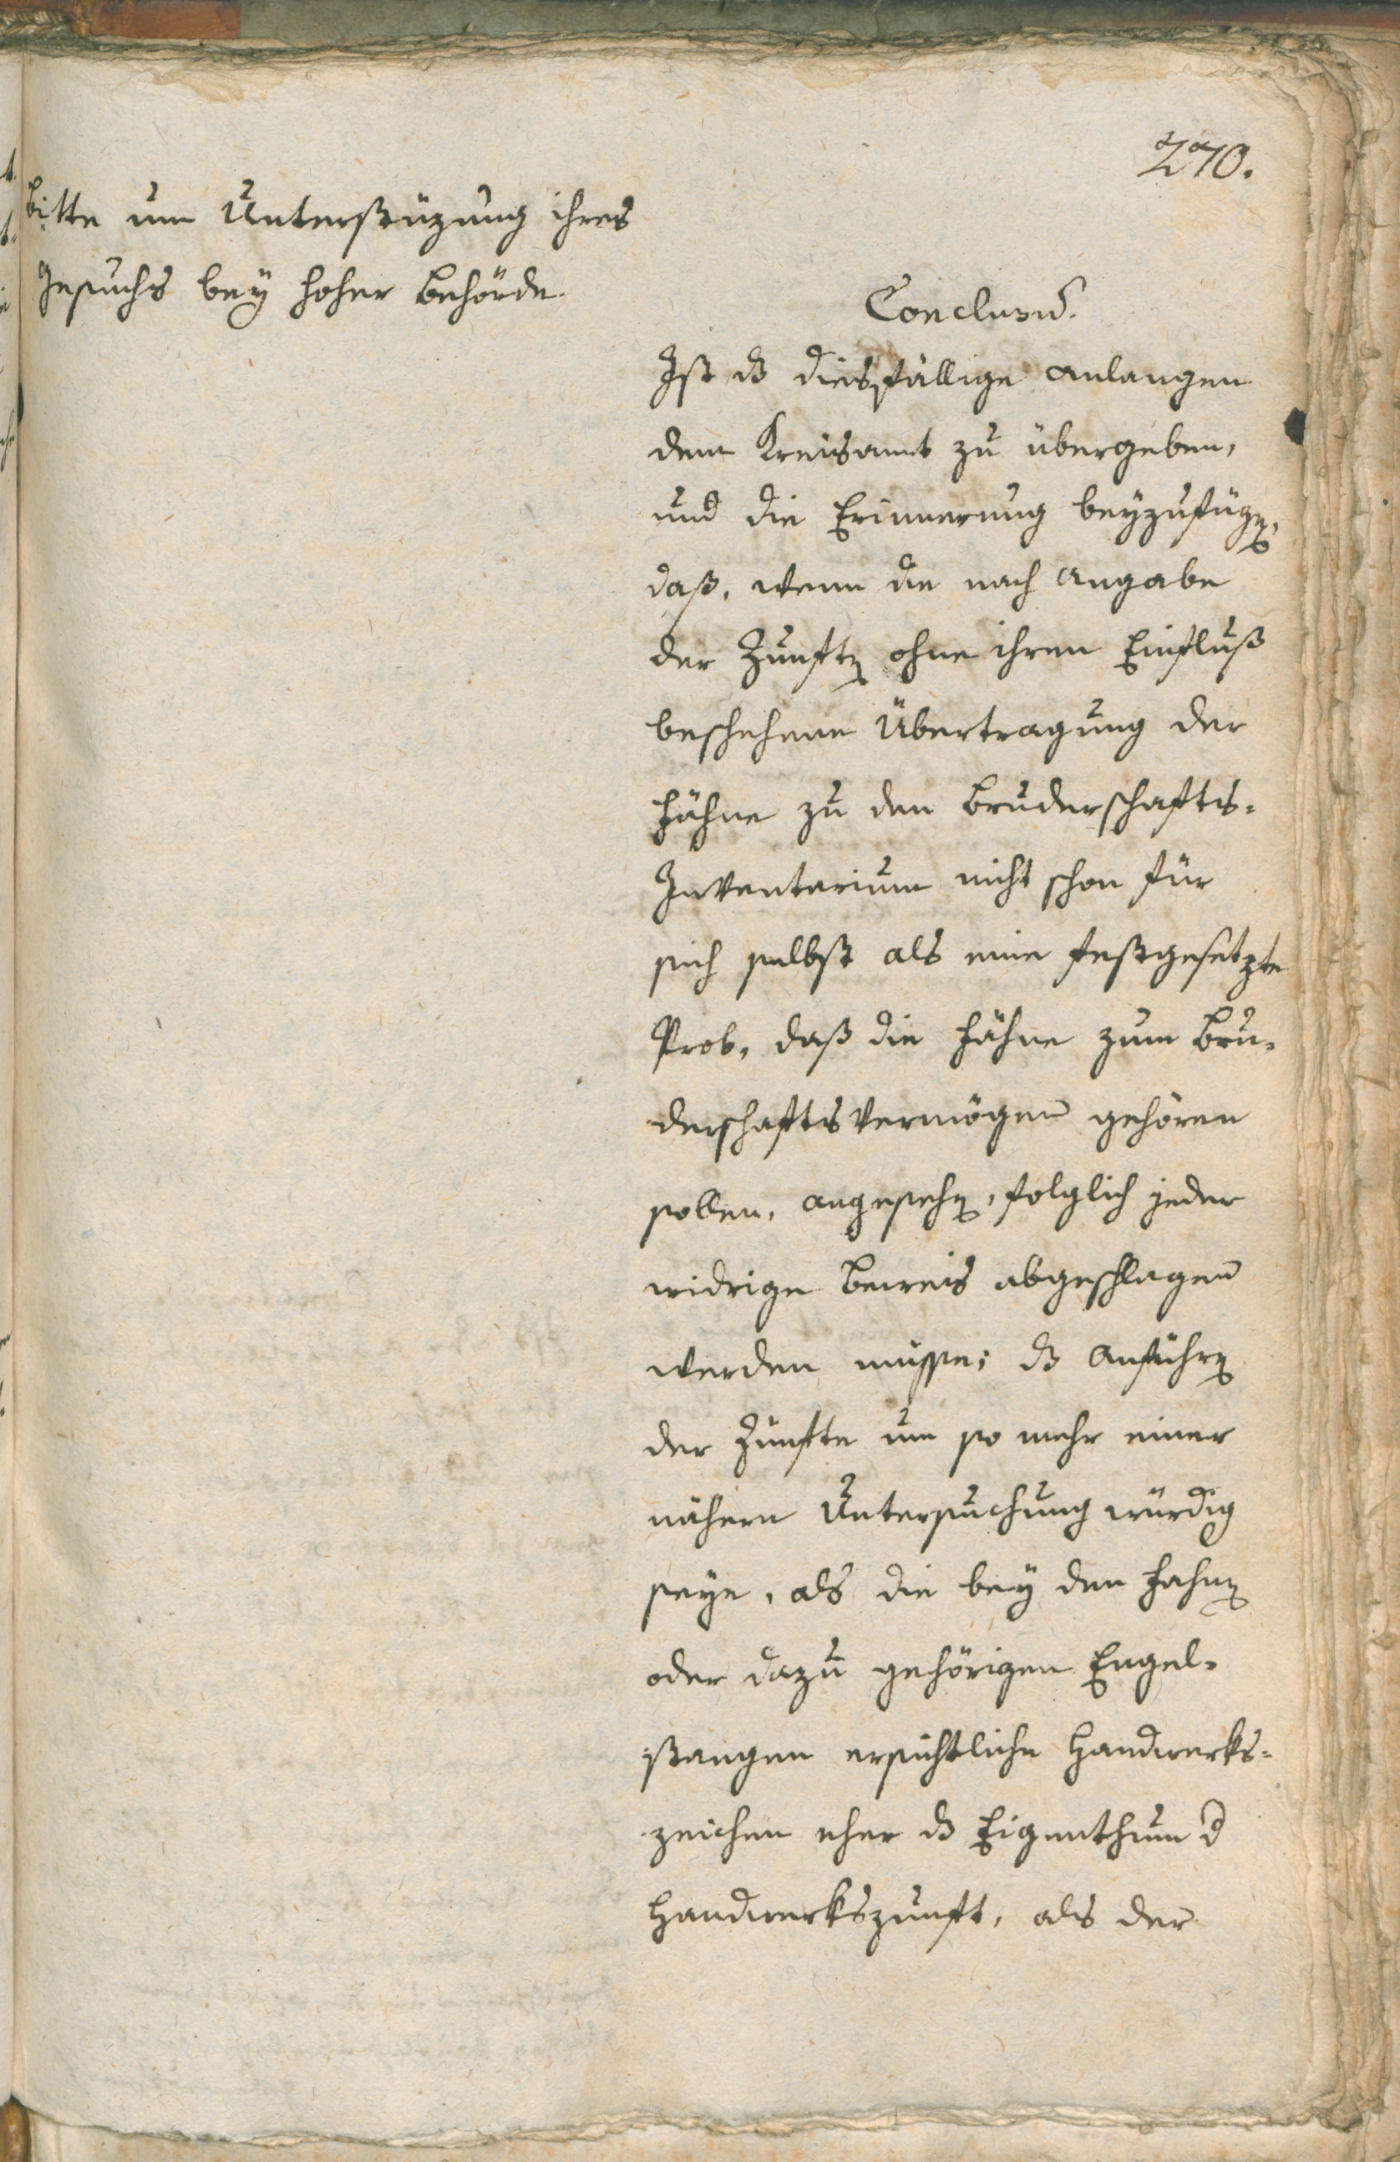 270.
Bitte um Unterstüzung ihres
Gesuchs bey hoher Behörde.
Conclusum.
Ist das diesfällige Anlangen
dem Kreisamt zu übergeben,
und die Erinnerung beyzufügen,
daß, wenn die nach Angabe
der Zunften ohne ihren Einfluß
beschehene Übertragung der
Fähne zu den Bruderschafts-
Inventarium nicht schon für
sich selbst als eine festgesetzte
Prob, daß die Fähne zum Bru-
derschafts Vermögen gehören
sollen, angesehen, folglich jeder
widrige Beweis abgeschlagen
werden müsse; das Anführen
der Zünfte um so mehr einer
nähern Untersuchung würdig
seye, als die bey den Fahnen
oder dazu gehörigen Engel-
stangen ersichtliche Handwerks-
zeichen eher das Eigenthum der
Handwerkszunft, als der